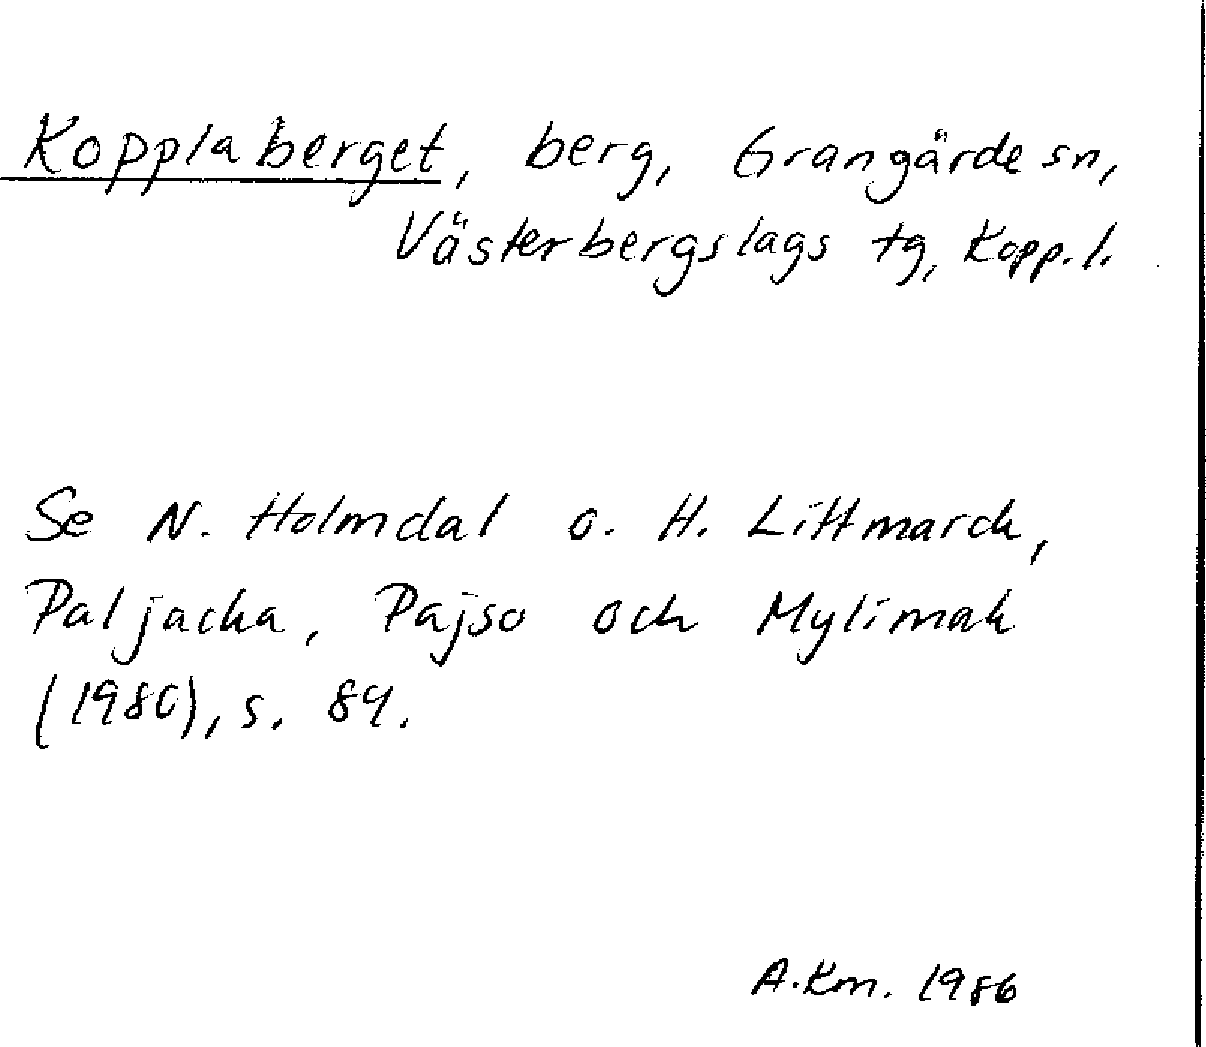 Kopplaberget, berg, Grangärde sn,
Västerbergslags tg, Kopp.l.
Se N. Holmdal o. H. Littmarck,
Paljacka, Pajso och Mylimak
(1980), s. 84.
A.Km. 1986